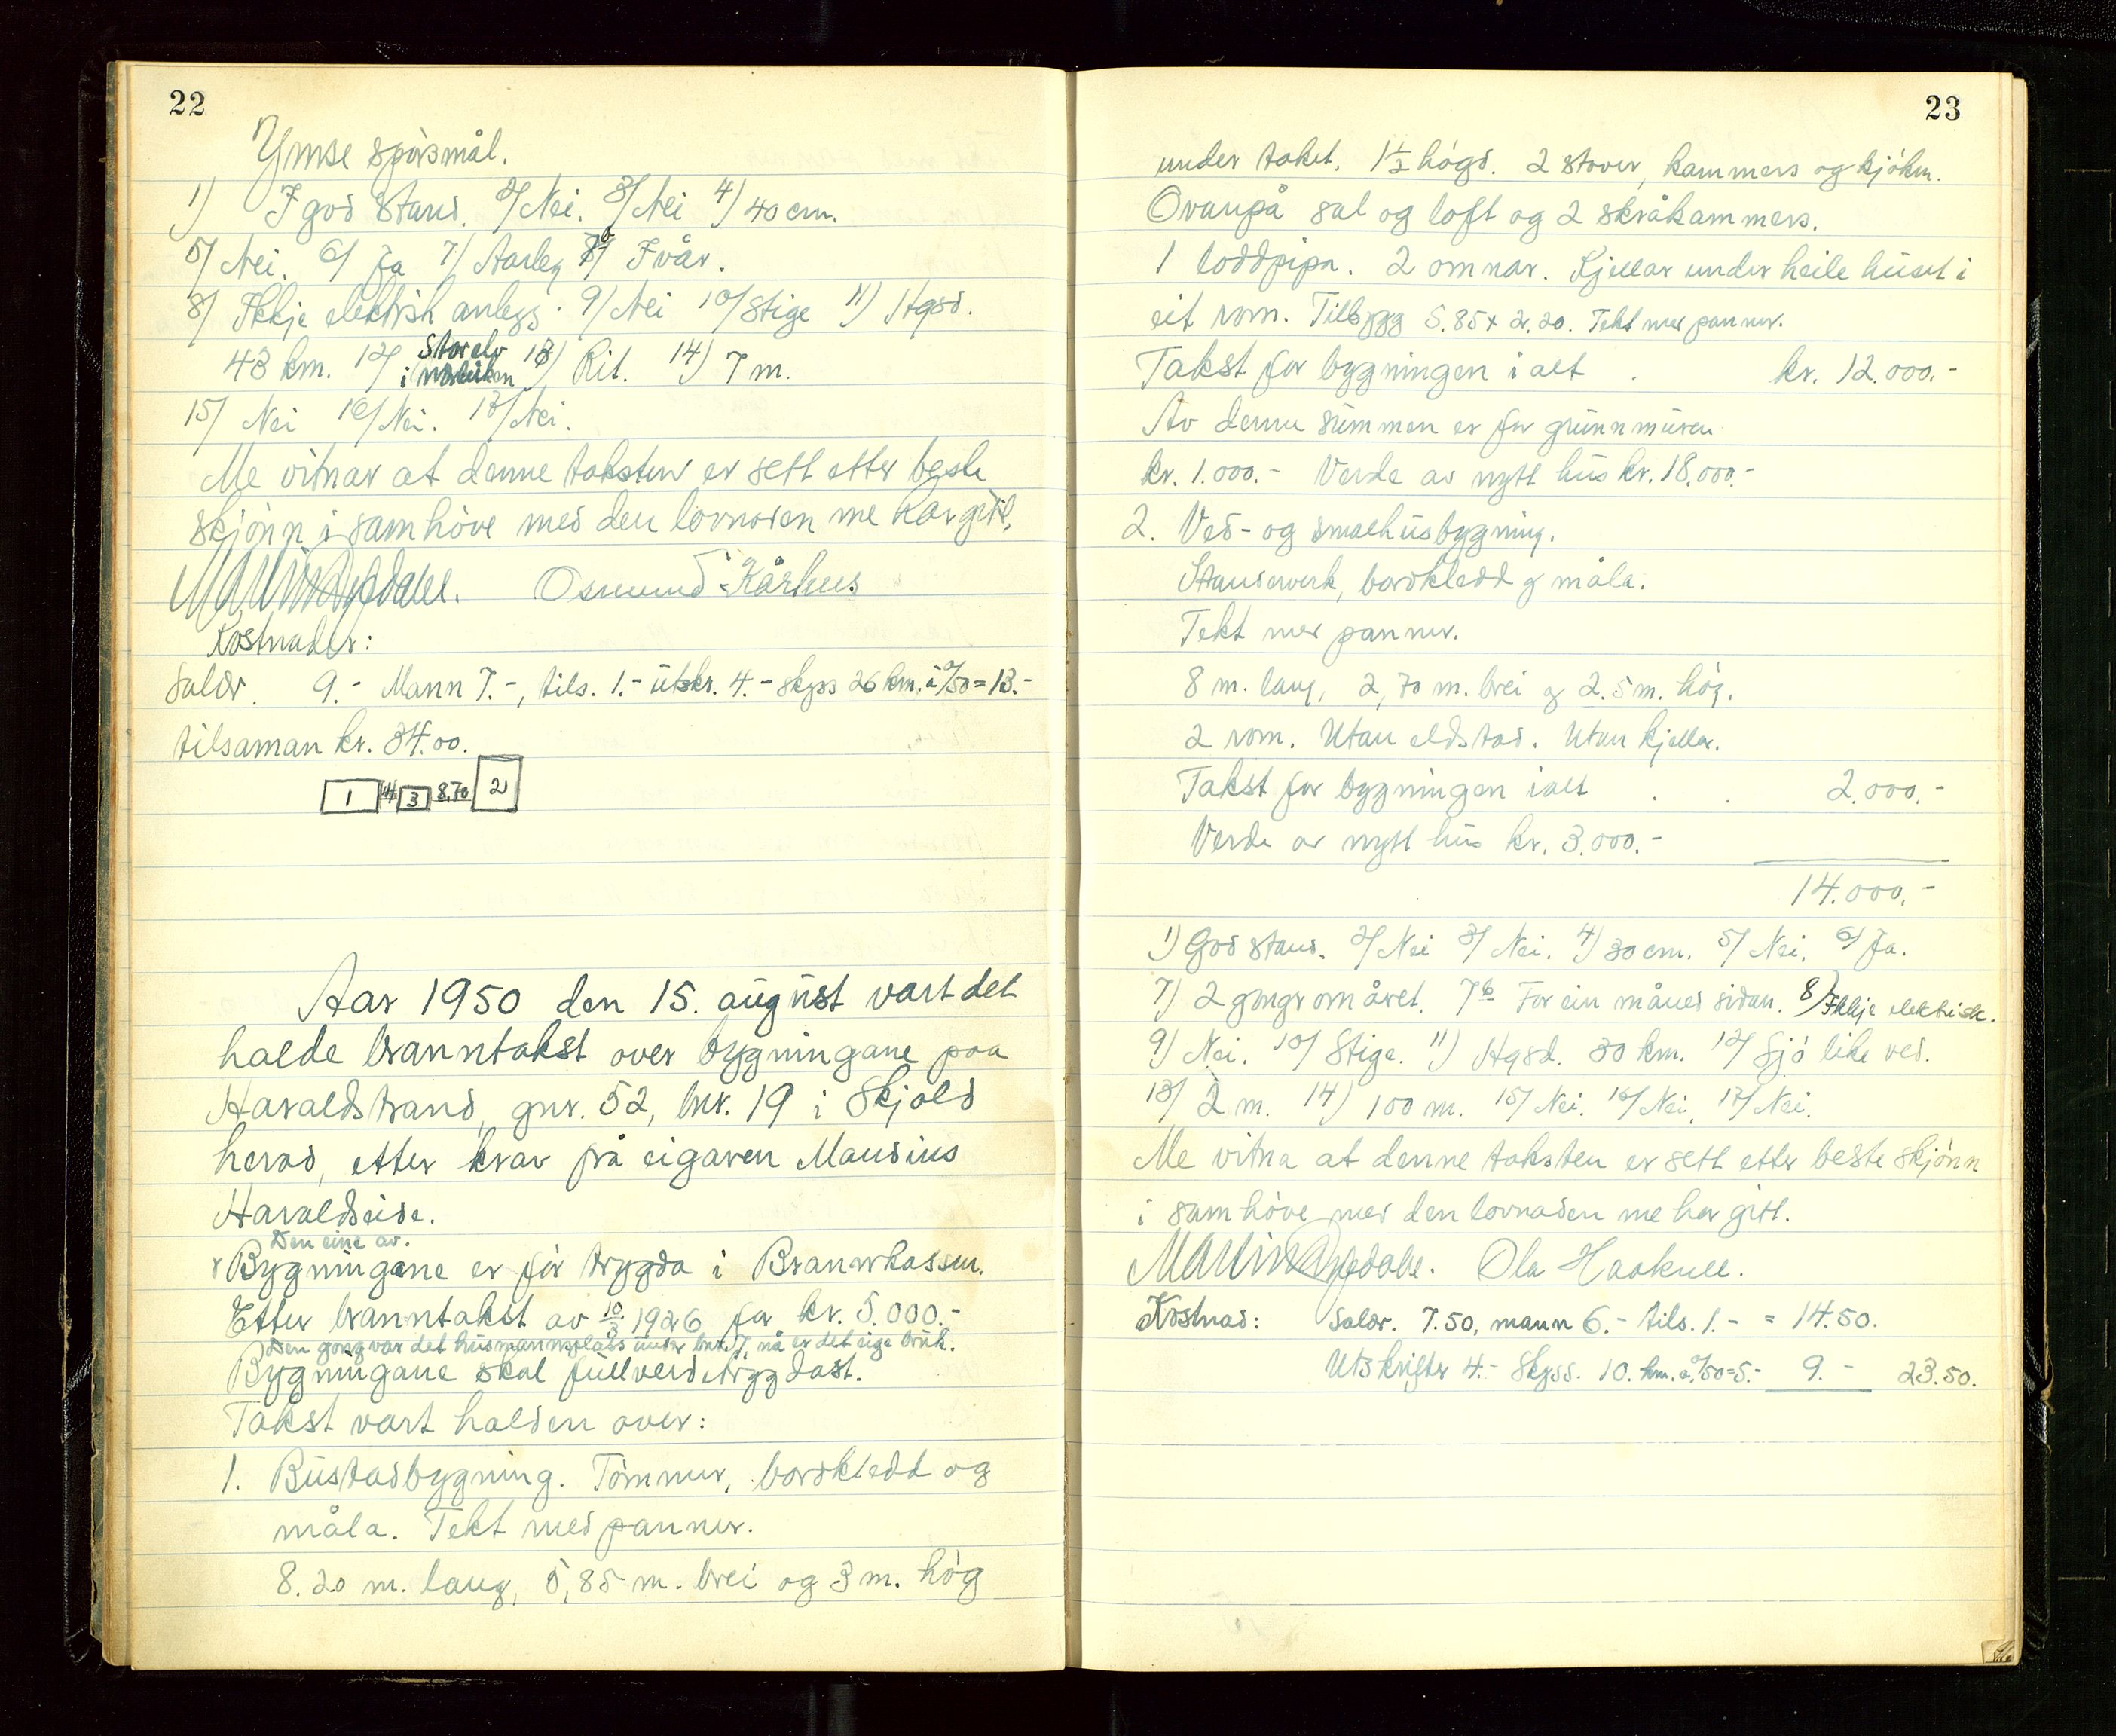 22
Ymse spörsmål.
1) I god stand. 2/ Nei. 3/ Nei 4) 40 cm.
5/ Nei. 6/ Ja 7/ Aarleg 7b/ I vår.
8/ Ikkje elektrisk anlegg. 9/ Nei 10/ Stige 11) Hgsd.
43 km. 12/ Storelv i nærleiken 13) Rit. 14) 7 m.
15/ Nei 16/ Nei. 17/ Nei.
Me vitnar at denne taksten er sett etter beste
skjönn i samhöve med den lovnaden me har gitt.
Osmund Kårhus
Kostnader:
Salær. 9.- Mann 7.-, tils. 1.- utskr. 4.- skyss 26 km. à 0/50 = 13.-
tilsaman kr. 34.00.
1 4 3 8.70 2
Aar 1950 den 15. august vart det
halde branntakst over bygningane paa
Haraldstrand, gnr. 52, bnr. 19 i Skjold
herad, etter krav frå eigaren Mandius
Haraldseide.
Den eine av.
Bygningane er för trygda i Brannkassen.
Etter branntakst av 10/3 1926 for kr. 5.000.-
Den gong var det husmannsplass under bnr. 7, nå er det eige bruk.
Bygningane skal fullverditryggdast.
Takst vart halden over:
1. Bustadbygning. Tömmer, bordkledd og
måla. Tekt med panner.
8.20 m. lang, 5,85 m. brei og 3 m. hög
23
under taket. 1½ högd. 2 stover, kammers og kjökn.
Ovanpå sal og loft og 2 skråkammers.
1 loddpipa. 2 omnar. Kjellar under heile huset i
eit rom. Tilbygg 5.85 x 2.20. Tekt med panner.
Takst for bygningen i alt . kr. 12.000.-
Av denne summen er for grunnmuren
kr. 1.000.- Verde av nytt hus kr. 18.000.-
2. Ved- og smaehusbygning.
Standerverk, bordkledd og måla.
Tekt med panner.
8 m. lang, 2,70 m. brei og 2.5 m. hög.
2 rom. Utan eldstad. Utan kjellar.
Takst for bygningen i alt . . 2.000.-
Verde av nytt hus kr. 3.000.-
14.000.-
1) God stand. 2/ Nei 3/ Nei. 4) 30 cm. 5/ Nei. 6/ Ja.
7) 2 gonger om året. 7b For ein måned sidan. 8) Ikkje elektrisk.
9) Nei. 10/ Stige. 11) Hgsd. 30 km. 12/ Sjö like ved.
13/ 2 m. 14) 100 m. 15/ Nei. 16/ Nei. 17/ Nei.
Me vitna at denne taksten er sett etter beste skjönn
i samhöve med den lovnaden me har gitt.
Ola Haakull.
Kostnad: Salær. 7.50, mann 6.- tils. 1.- = 14.50.
Utskrifter 4.- Skyss. 10. km. à 0/50 = 5.- 9.- 23.50.